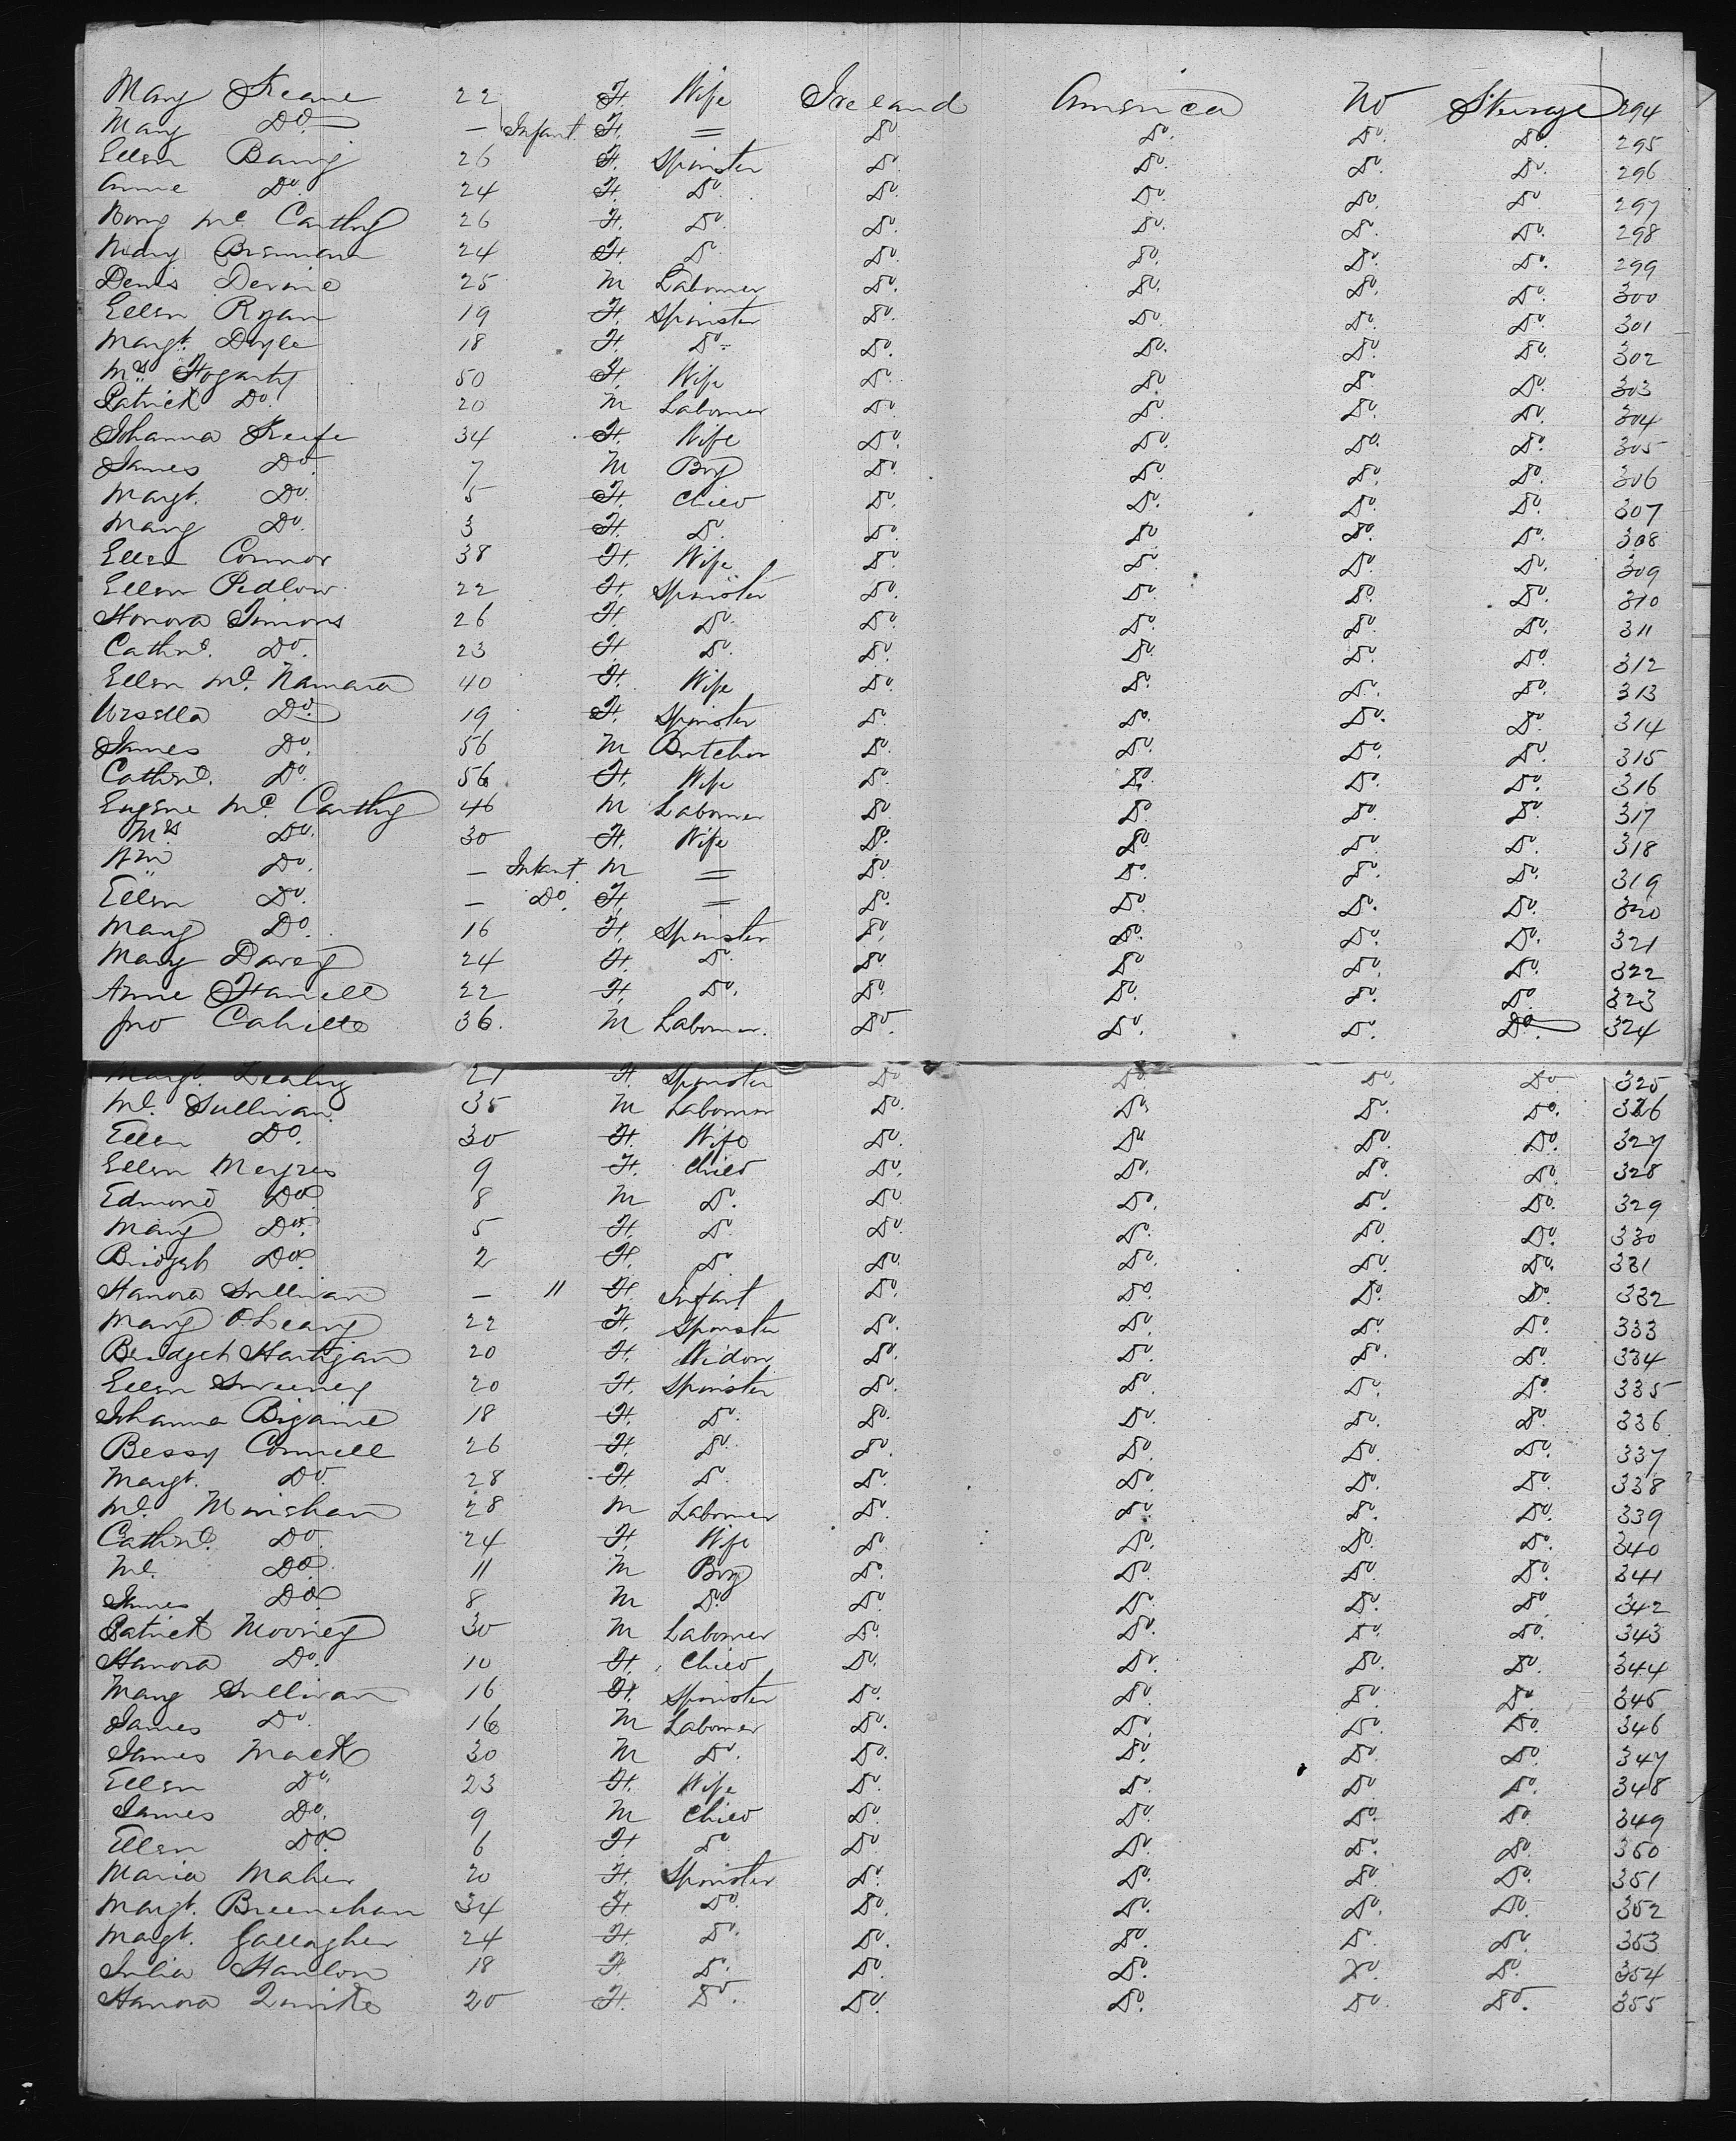 Mary Keane 22 F. Wife Ireland America No Steerage 294
Mary Do. — Infant F. = Do. Do. Do. Do. 295
Ellen Barry 26 F. Spinster Do. Do. Do. Do. 296
Anne Do. 24 F. Do. Do. Do. Do. Do. 297
Mc. Carthy 26 F. Do. Do. Do. Do. Do. 298
Mary 24 F. Do. Do. Do. Do. Do. 299
Denis Devine 25 M Labourer Do. Do. Do. Do. 300
Ellen Ryan 19 F. Spinster Do. Do. Do. Do. 301
Margt. Doyle 18 F. Do. Do. Do. Do. Do. 302
Mrs. Fogarty 50 F. Wife Do. Do. Do. Do. 303
Patrick Do. 20 M Labourer Do. Do. Do. Do. 304
Johanna Keefe 34 F. Wife Do. Do. Do. Do. 305
James Do. 7 M Boy Do. Do. Do. Do. 306
Margt. Do. 5 F. Child Do. Do. Do. Do. 307
Mary Do. 3 F. Do. Do. Do. Do. Do. 308
Ellen Connor 38 F. Wife Do. Do. Do. Do. 309
Ellen Pedlow 22 F. Spinster Do. Do. Do. Do. 310
Honora Simons 26 F. Do. Do. Do. Do. Do. 311
Cathne. Do. 23 F. Do. Do. Do. Do. Do. 312
Ellen Mc. Namara 40 F. Wife Do. Do. Do. Do. 313
Ursella Do. 19 F. Spinster Do. Do. Do. Do. 314
James Do. 56 M Butcher Do. Do. Do. Do. 315
Cathne. Do. 56 F. Wife Do. Do. Do. Do. 316
Eugene Mc. Carthy 46 M Labourer Do. Do. Do. Do. 317
Mrs. Do. 30 F. Wife Do. Do. Do. Do. 318
Wm Do. — Infant M = Do. Do. Do. Do. 319
Ellen Do. — Do. F. = Do. Do. Do. Do. 320
Mary Do. 16 F. Spinster Do. Do. Do. Do. 321
Mary Davey 24 F. Do. Do. Do. Do. Do. 322
Anne 22 F. Do. Do. Do. Do. Do. 323
Jno Cahille 36. M Labourer. Do. Do. Do. Do. 324
Margt. Leahy 21 F. Spinster Do. Do. Do. Do. 325
Ml. Sullivan 35 M Labourer Do. Do. Do. Do. 326
Ellen Do. 30 F. Wife Do. Do. Do. Do. 327
Ellen 9 F. Child Do. Do. Do. Do. 328
Edmond Do. 8 M Do. Do. Do. Do. Do. 329
Mary Do. 5 F. Do. Do. Do. Do. Do. 330
Bridget Do. 2 F. Do. Do. Do. Do. Do. 331
Hanora Sullivan — 11 F. Infant Do. Do. Do. Do. 332
Mary O.Leary 22 F. Spinster Do. Do. Do. Do. 333
Bridget Hartigan 20 F. Widow Do. Do. Do. Do. 334
Ellen Sweeney 20 F. Spinster Do. Do. Do. Do. 335
Johanna 18 F. Do. Do. Do. Do. Do. 336
Bessy Connell 26 F. Do. Do. Do. Do. Do. 337
Margt. Do. 28 F. Do. Do. Do. Do. Do. 338
Ml. 28 M Labourer Do. Do. Do. Do. 339
Cathne. Do. 24 F. Wife Do. Do. Do. Do. 340
Ml. Do. 11 M Boy Do. Do. Do. Do. 341
James Do. 8 M Do. Do. Do. Do. Do. 342
Patrick Mooney 30 M Labourer Do. Do. Do. Do. 343
Hanora Do. 10 F. Child Do. Do. Do. Do. 344
Mary Sullivan 16 F. Spinster Do. Do. Do. Do. 345
James Do. 16 M Labourer Do. Do. Do. Do. 346
James Mack 30 M Do. Do. Do. Do. Do. 347
Ellen Do. 23 F. Wife Do. Do. Do. Do. 348
James Do. 9 M Child Do. Do. Do. Do. 349
Ellen Do. 6 F. Do. Do. Do. Do. Do. 350
Maria Maher 20 F. Spinster Do. Do. Do. Do. 351
Margt. Breenehan 34 F. Do. Do. Do. Do. Do. 352
Margt. Gallagher 24 F. Do. Do. Do. Do. Do. 353
Julia Hanlon 18 F. Do. Do. Do. Do. Do. 354
Hanora 20 F. Do. Do. Do. Do. Do. 355